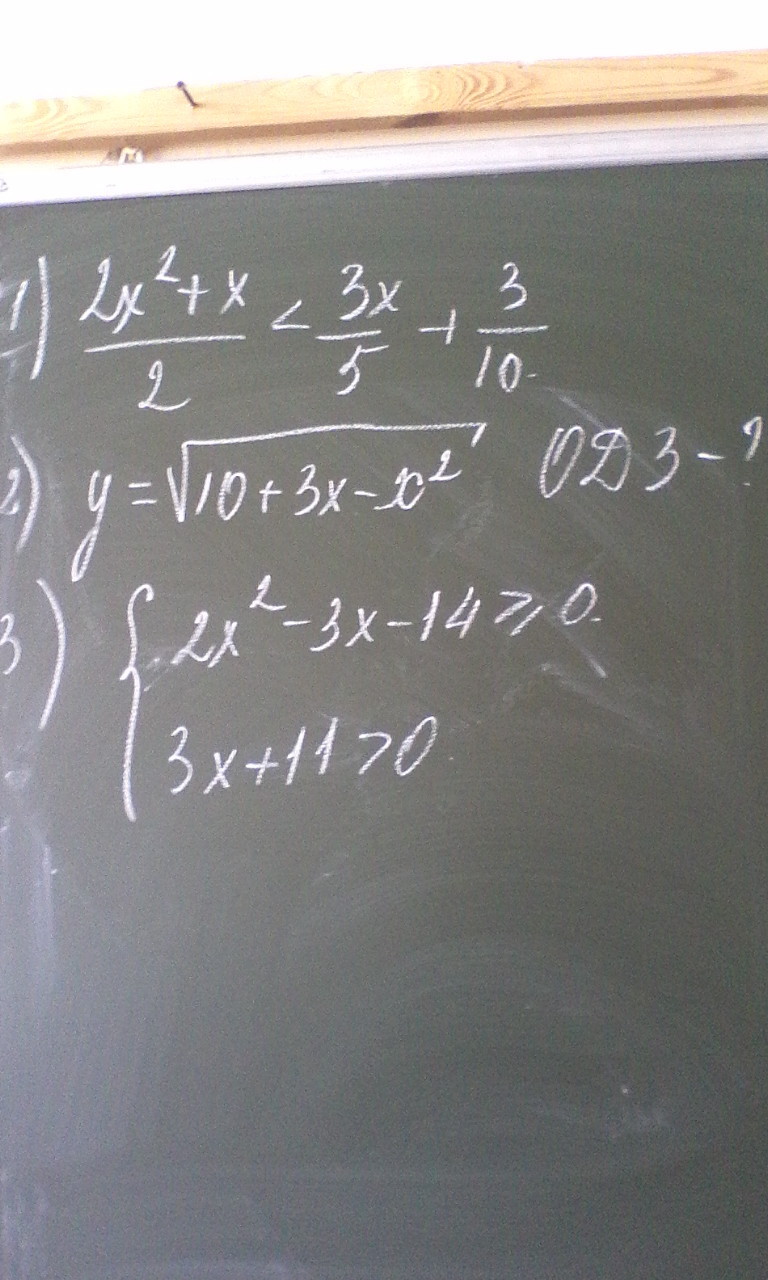 1) (2x²+x)/2 < 3x/5 + 3/10
2) y=√(10+3x-x²) ОДЗ-?
3) { 2x²-3x-14⩾0
3x+11>0